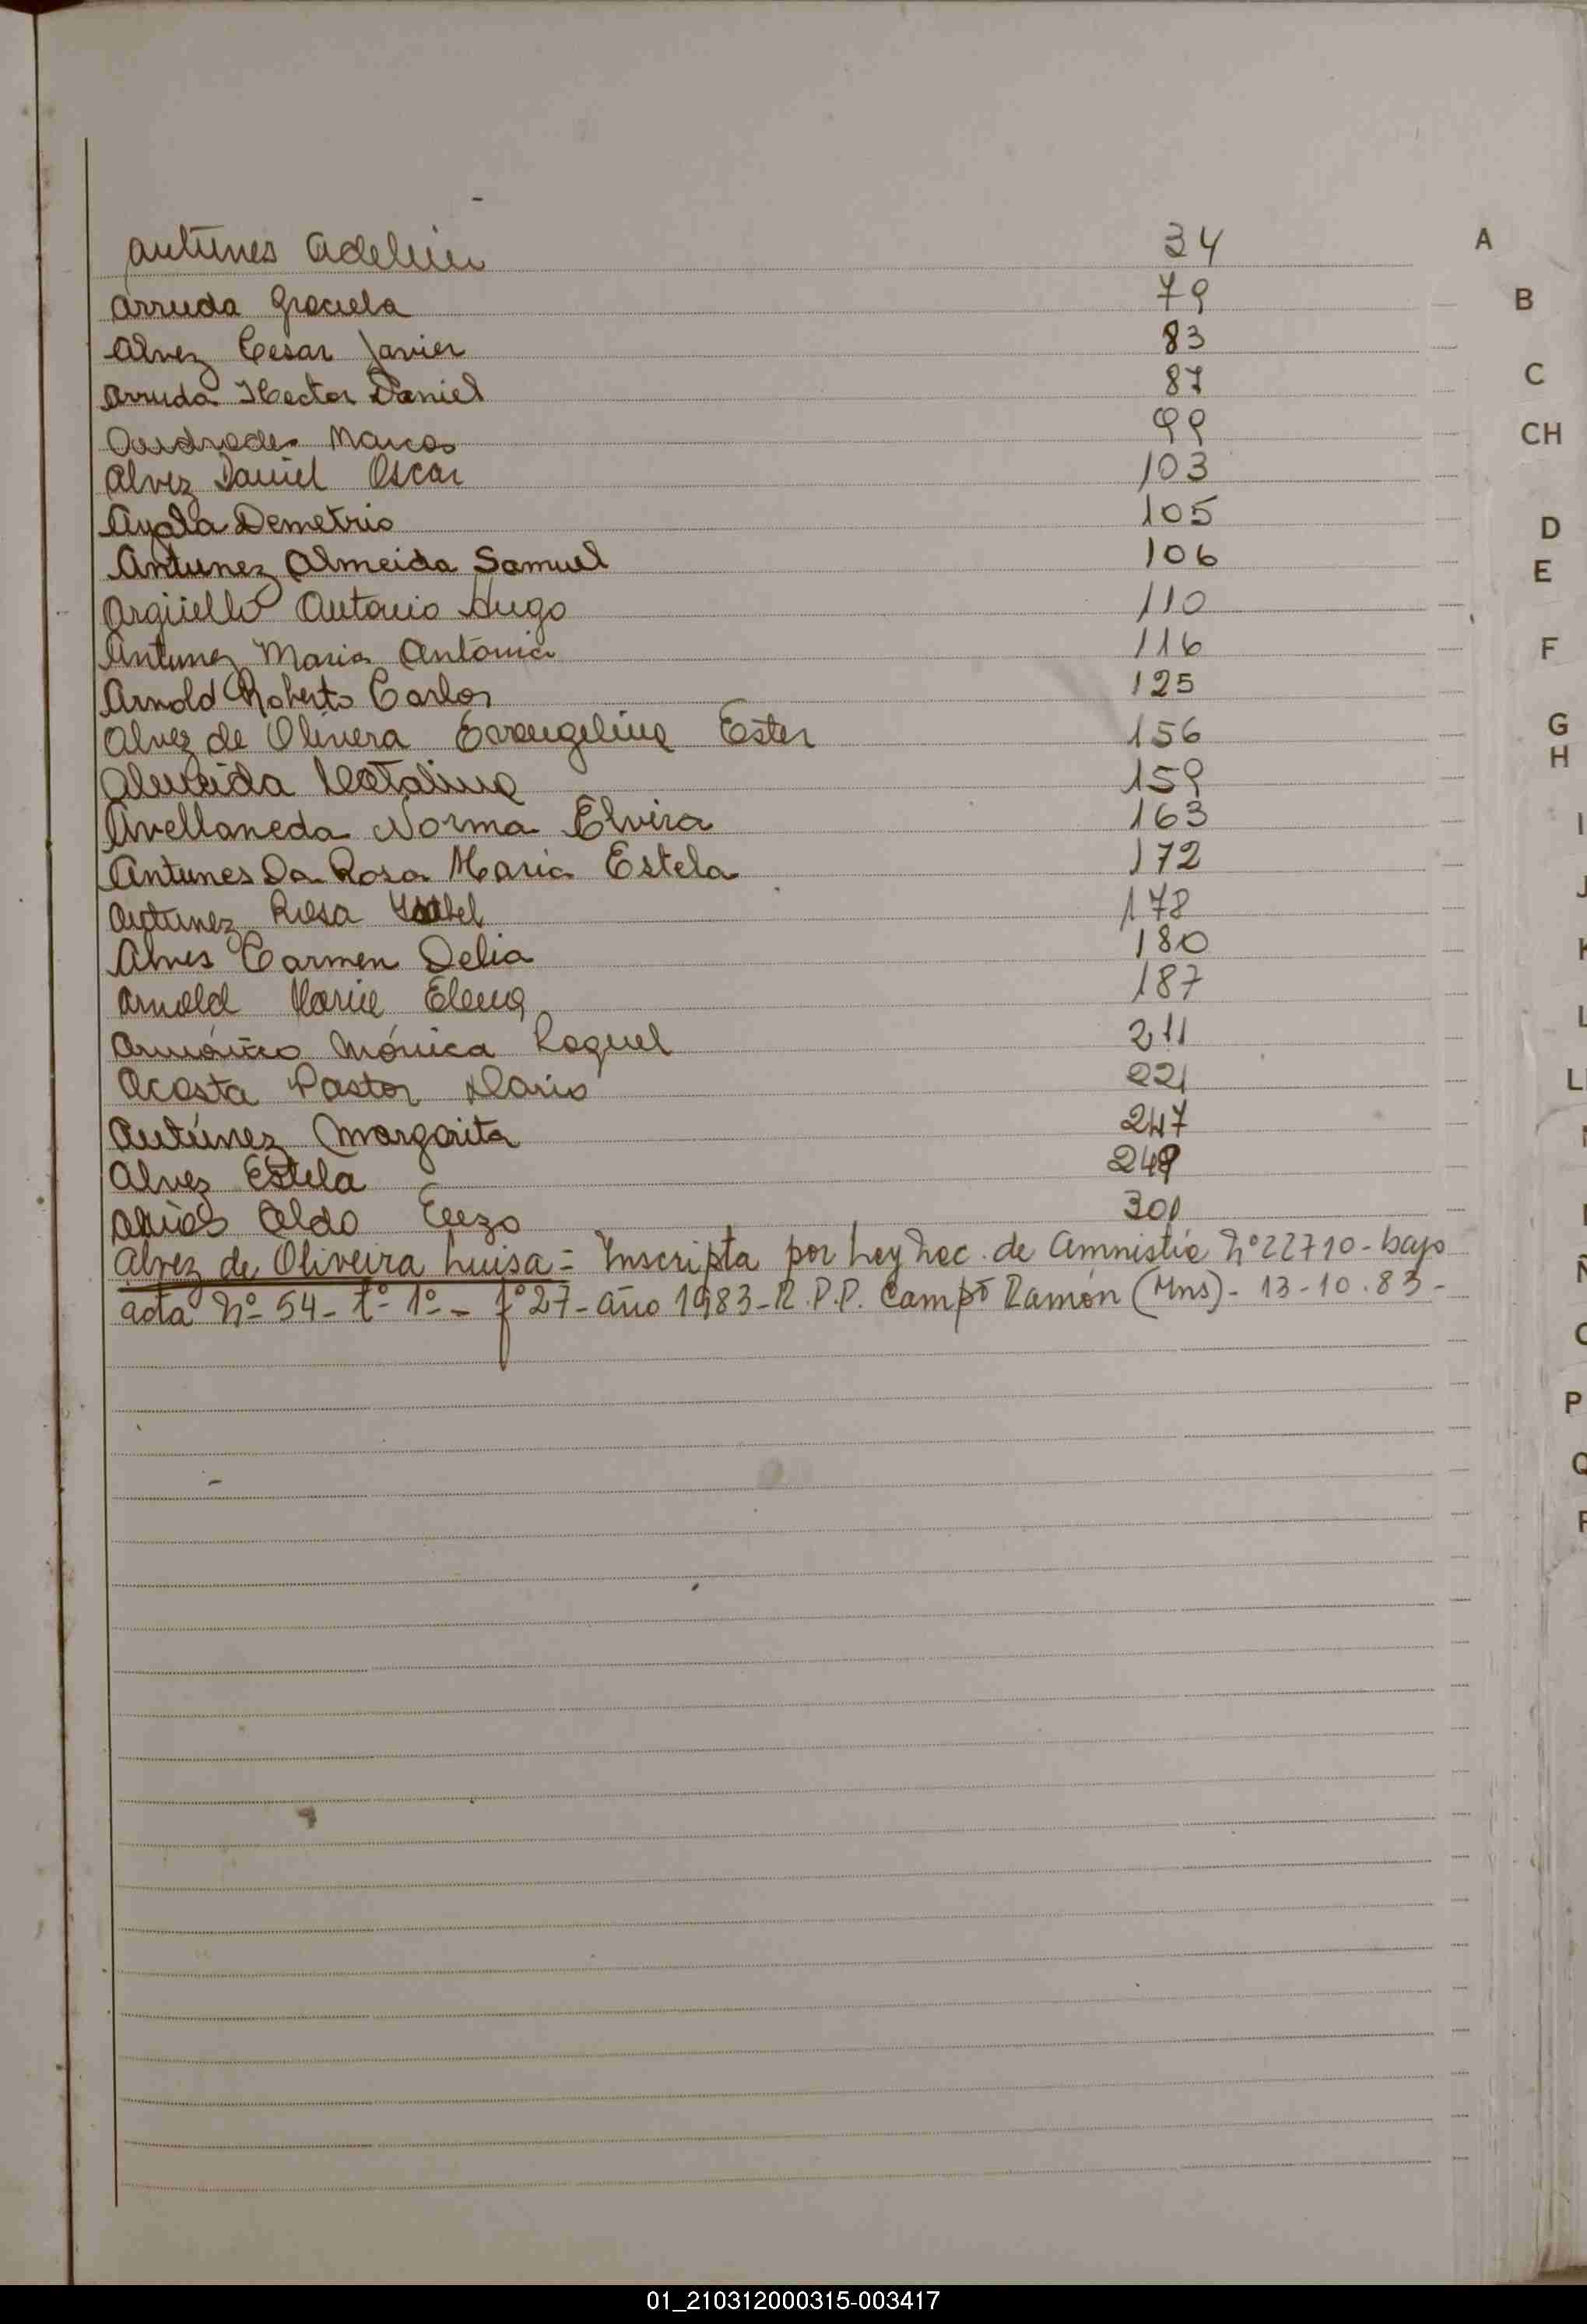 Antunes Adelin 34
Arruda Graciela 79
Alvez Cesar Javier 83
Arruda Hector Daniel 87
Marcos 99
Alvez Daniel Oscar 103
Ayala Demetrio 105
Antunez Almeida Samuel 106
Argüello Antonio Hugo 110
Antunez Maria Antonia 116
Arnold Roberto Carlos 125
Alvez de Olivera Evangelina Ester 156
Almeida Catalina 159
Avellaneda Norma Elvira 163
Antunes Da Rosa Maria Estela 172
Antunez Rosa Ysabel 178
Alves Carmen Delia 180
Arnold Maria Elena 187
Mónica Raquel 211
Acosta Pastor Dario 221
Antúnez Margarita 247
Alvez Estela 249
Aldo Enzo 301
Alvez de Oliveira Luisa = Inscripta por Ley Nac. de Amnistia Nº 22710 - bajo
acta Nº 54 - tº 1º - fº 27 - año 1983 - R.P.P. Campo Ramón (Mns) - 13-10.83 -
A
B
C
CH
D
E
F
G
H
I
J
K
L
Ñ
P
Q
01_210312000315-003417